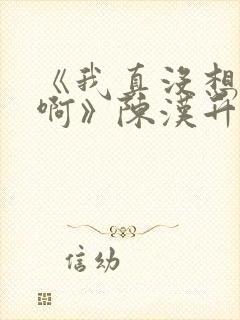 《我真没想
啊》陈汉升
信幼